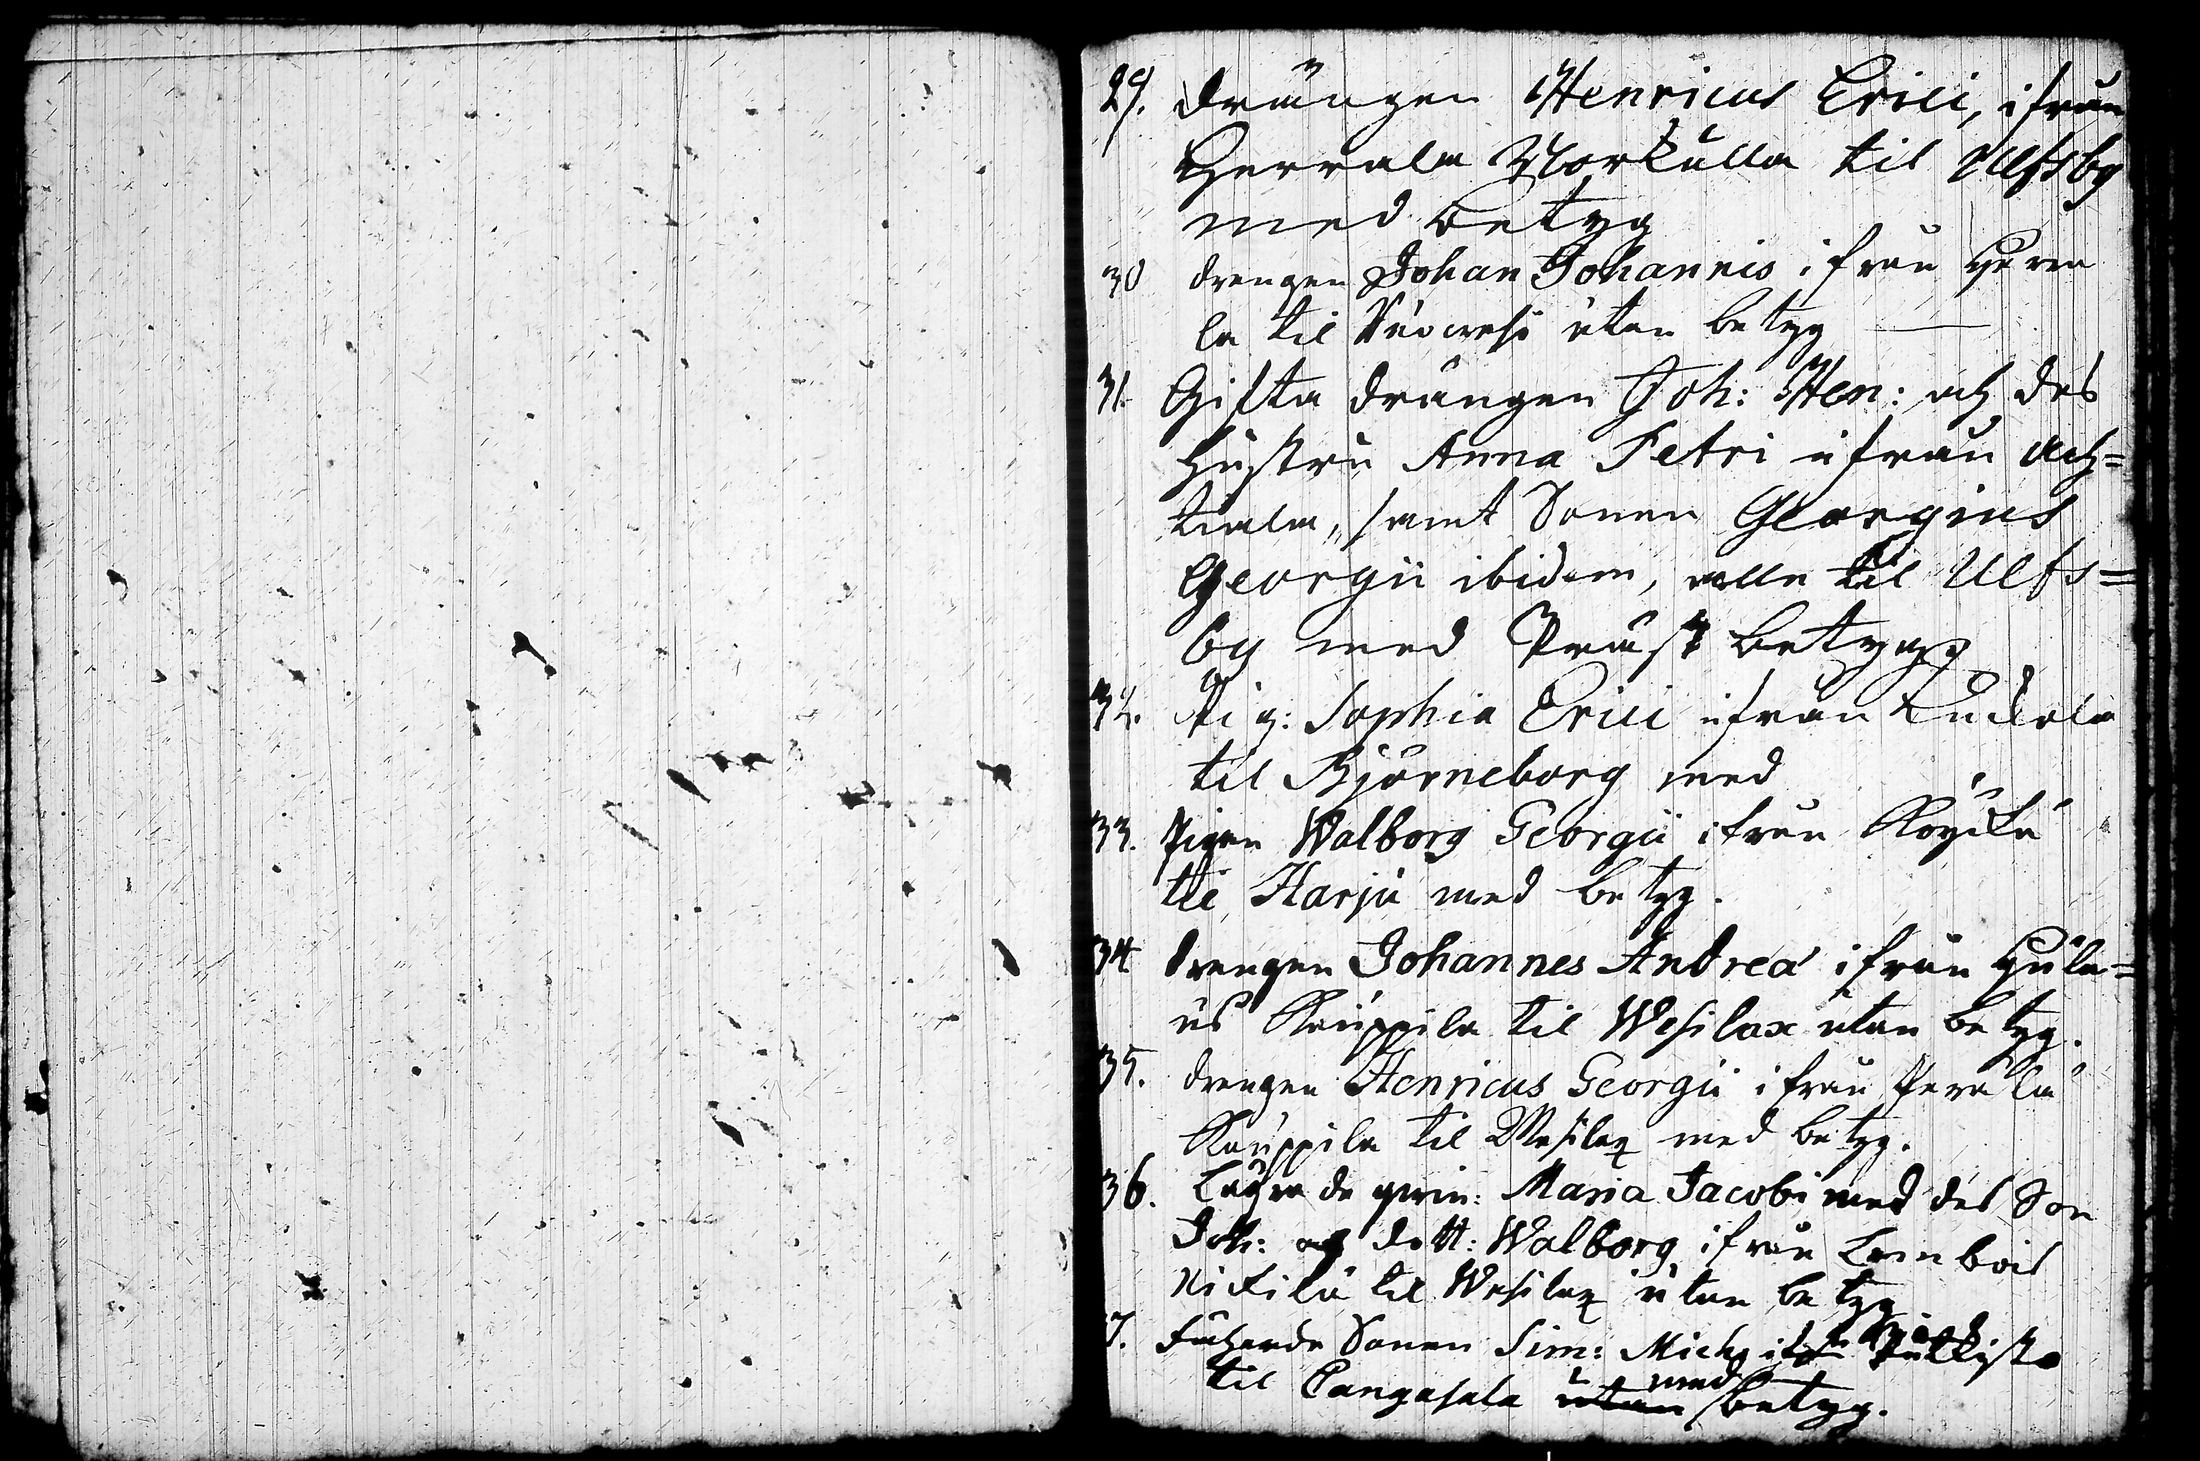 29. drängen Henricus Erici, ifrån
Herrala Yorkulla til Ulfsby
med betyg
30 drengen Johan Johannis ifrån Herra
la til utan betyg
31. Gifta drängen Joh: Hen: och des
hustru Anna Petri ifrån Ach=
tiala, samt Sonen Georgius
Georgii ibidem, alla til Ulfs=
by med Präst betyg
32. Pig: Sophia Erici ifrån
til Björneborg med
33. Pigan Walborg Georgii ifrån
til Harju med betyg.
34 drengen Johannes Andreæ ifrån Hula=
us Kauppila til Wesilax utan betyg.
35. drengen Henricus Georgii ifrån Perälä
Kauppila til Wesilax med betyg.
36. Maria Jacobi med des Son
Joh: och dott: Walborg ifrån Lembois
Nikilä til Wesilax utan betyg
37. Sonen Sim: Mich:
til Cangasala utan med betyg.